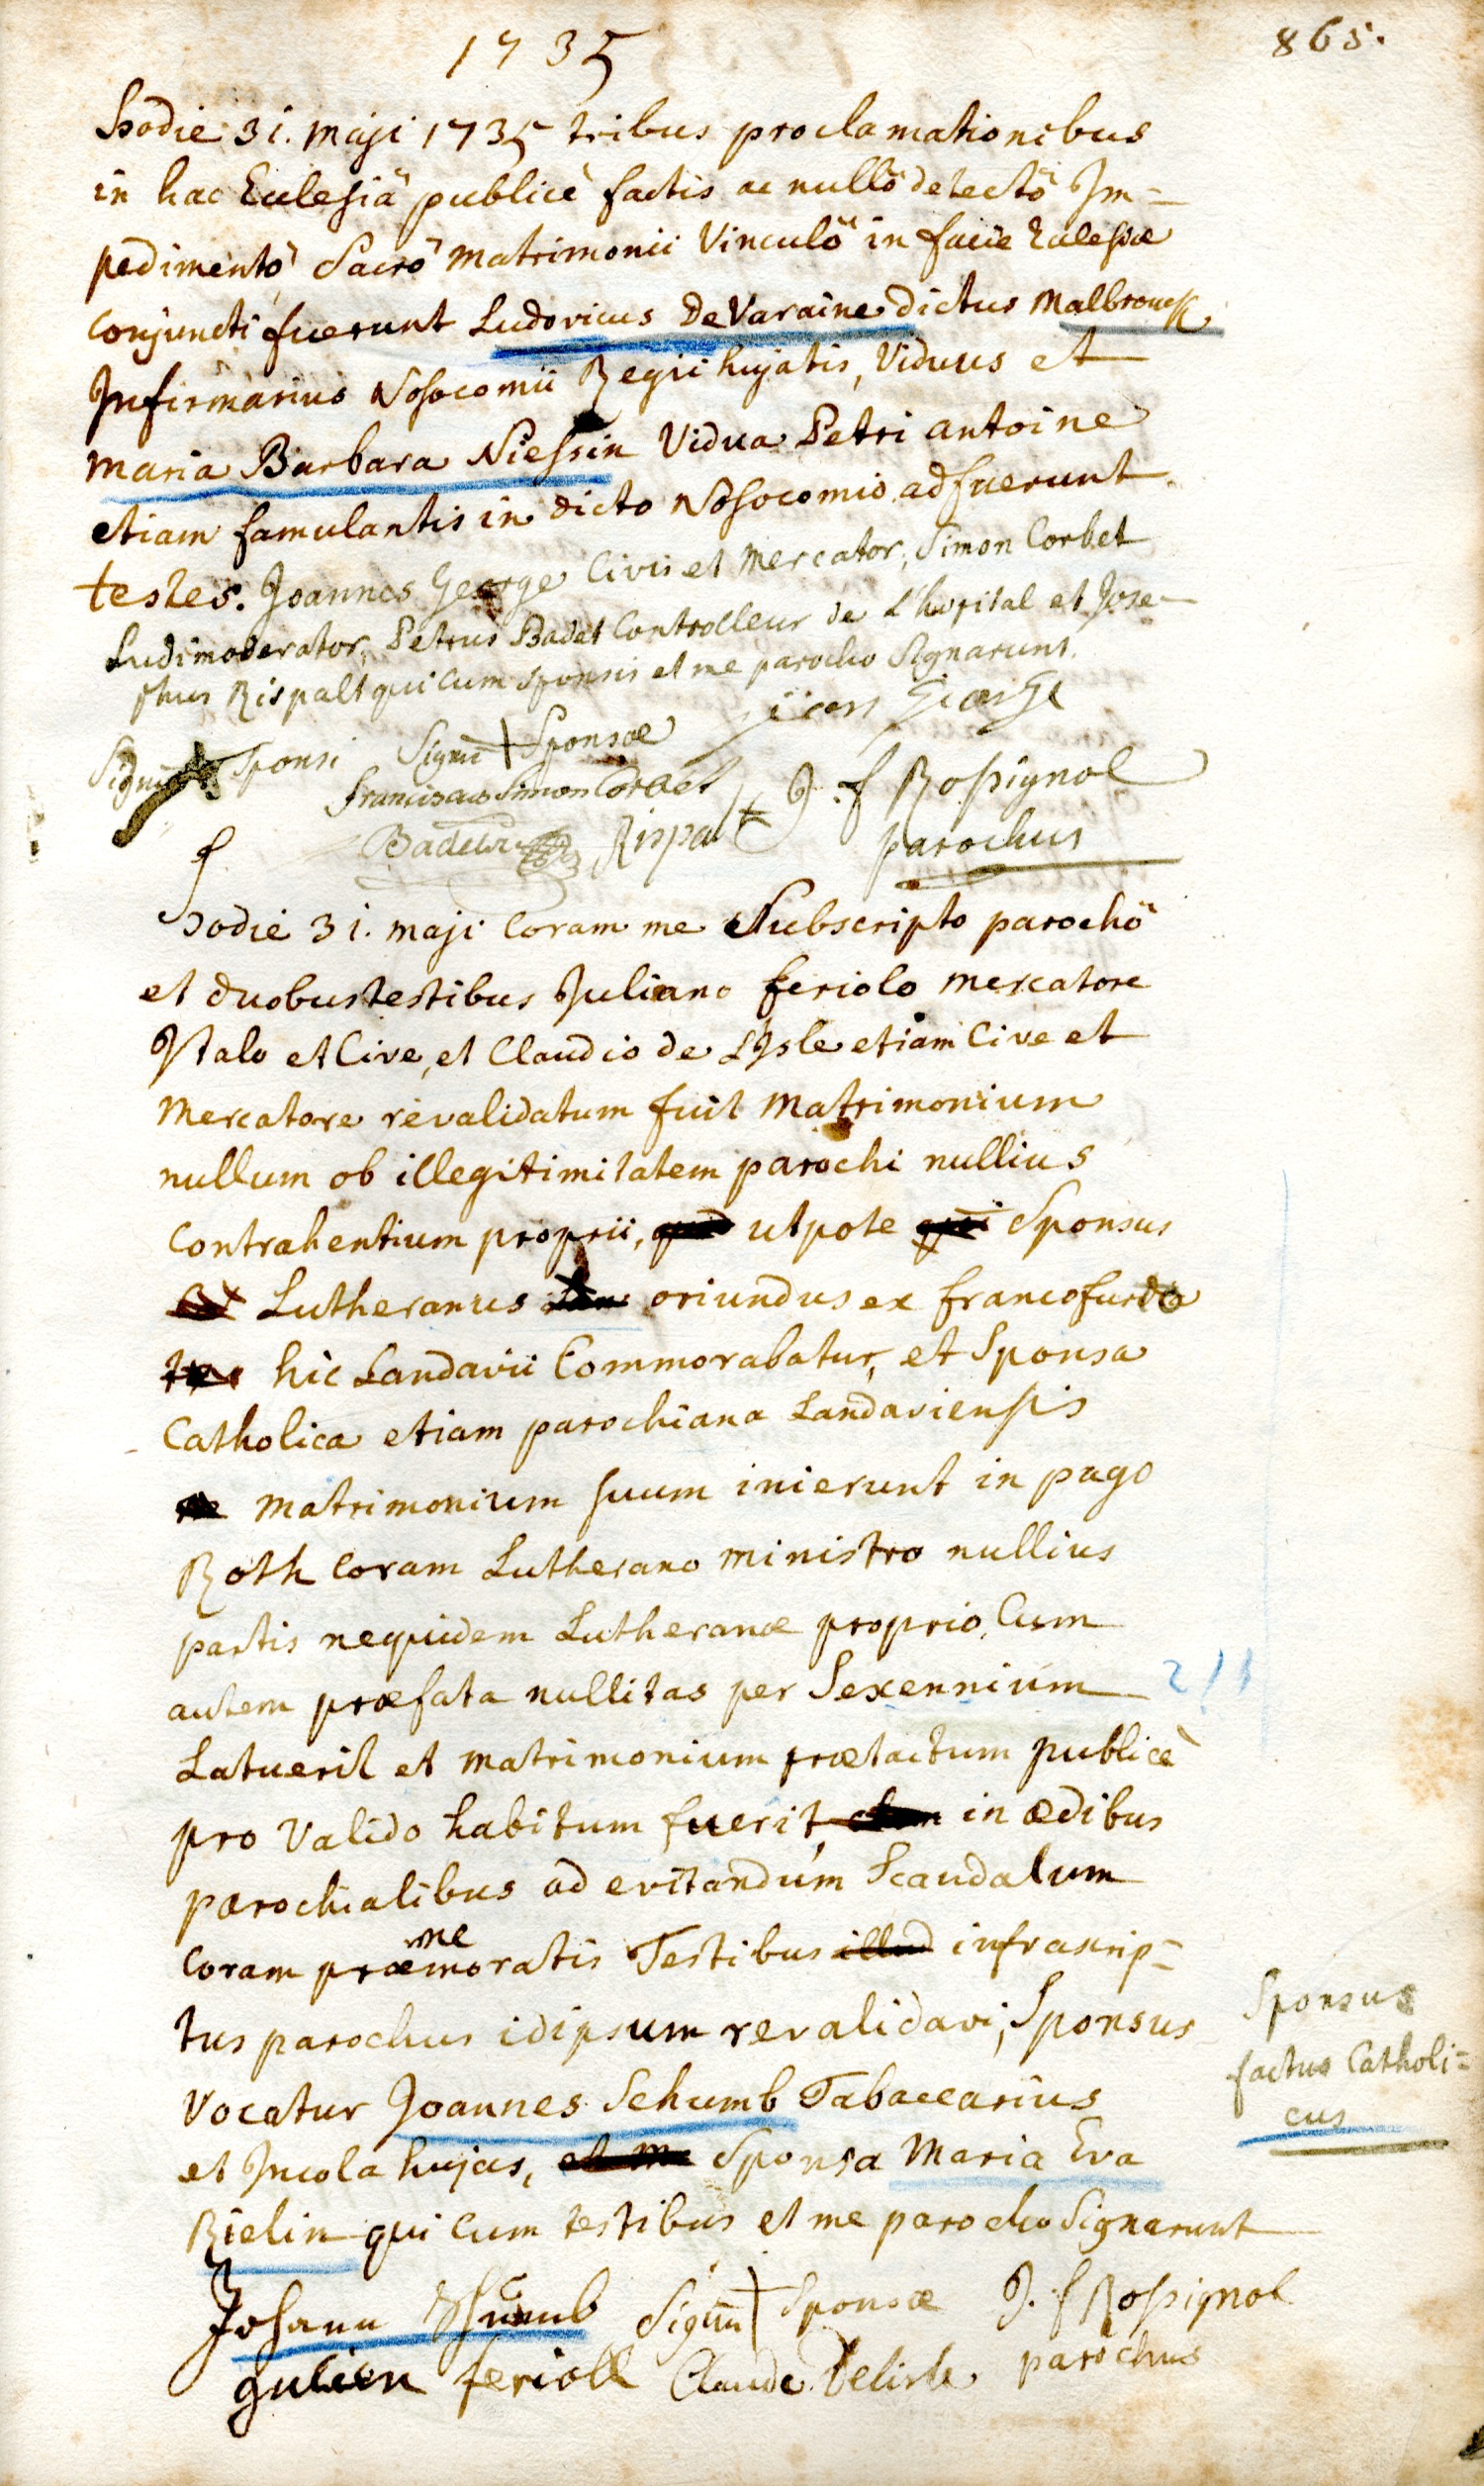 1735
865.
Hodie 31. maji 1735 tribus proclamationibus
in hac Eclesiâ publicè factis ac nullô detectô Im=
pedimentô Sacrô matrimonii Vinculô in facie Eclesiæ
conjuncti fuerunt Ludovicus DeVaraine dictus Malbrouck
Infirmarius Nosocomii Regii hujatis, Viduus et
maria Barbara Niessin Vidua Petri antoine
etiam famulantis in dicto Nosocomio adfuerunt
testes. Joannes George Civis et Mercator, Simon Corbet
Ludimoderator, Petrus Badet Controlleur de L'hopital et Jose-
phus Rispalt qui cum sponsis et me parocho Signarunt.
Signum Sponsi Signū Sponsæ jean George
Franciscus Simon Corbet J. f Rossignol
Rispalt parochus
Hodie 31. maji Coram me Subscripto parochô
et duobus testibus Juliano feriolo mercatore
Italo et Cive, et Claudio de L'Isle etiam Cive et
Mercatore revalidatum fuit matrimonium
nullum ob illegitimitatem parochi nullius
Contrahentium proprii, utpote qui Sponsus
Lutheranus oriundus ex francofurdo
hic Landavii Commorabatur, et Sponsa
Catholica etiam parochiana Landaviensis
matrimonium suum inierunt in pago
Roth Coram Lutherano ministro nullius
partis nequidem Lutheranæ proprio, Cum
autem præfata nullitas per Sexennium
Latuerit et matrimonium prætactum publicè
pro Valido habitum fuerit, in ædibus
parochialibus ad evitandum Scandalum
Coram præmemoratis Testibus illud infrascrip=
tus parochus idipsum revalidavi, Sponsus
Vocatur Joannes Schumb Tabaccarius
et Incola hujas, et me Sponsa Maria Eva
Rielin qui Cum testibus et me parocho Signarunt
Sponsus
factus Catholi=
cus
Johann Schumb Signū Sponsæ J. f Rossignol
julien feriolle Claude Delisle parochus